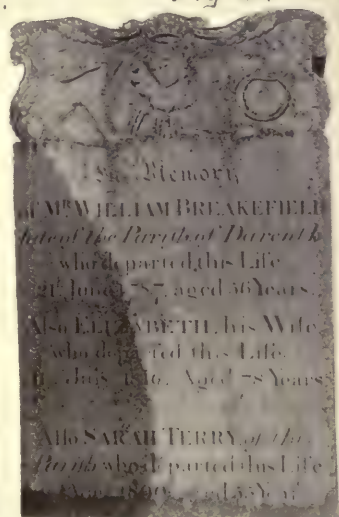 In Memory
of Mr WILLIAM BREAKEFIELD
late of the Parish of Darenth
who departed this Life
21st June 1787 aged 56 Years.
Also ELIZABETH, his Wife
who departed this Life
July Aged 78 Years
Also SARAH TERRY, of this
Parish who departed this Life